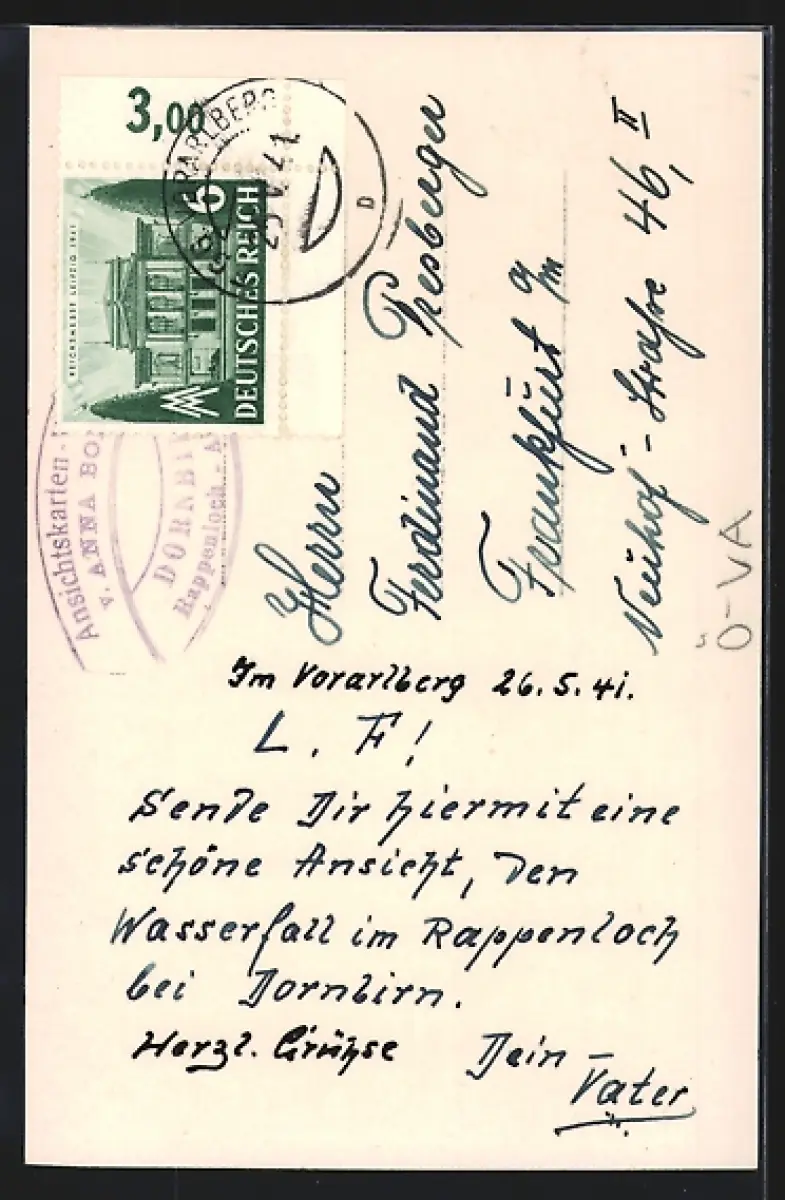 3,00
VORARLBERG
REICHSMESSE LEIPZIG 1941
6
DEUTSCHES REICH
Ansichtskarten-
v. ANNA
Rappenloch-
Herrn
Ferdinand
Frankfurt a/m
Neuhof-Straße 46, II
Ö-VA
Im Vorarlberg 26.5.41.
L. F!
Sende Dir hiermit eine
schöne Ansicht, den
Wasserfall im Rappenloch
bei Dornbirn.
Herzl. Grühse Dein
Vater